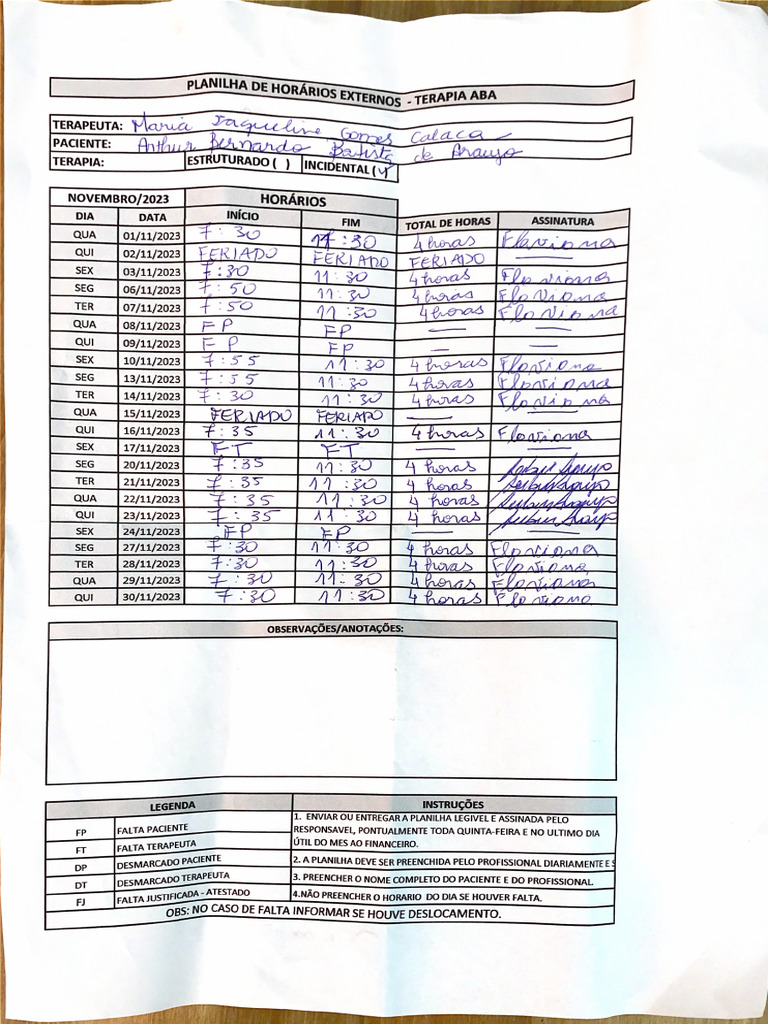 PLANILHA DE HORÁRIOS EXTERNOS - TERAPIA ABA
TERAPEUTA: Maria Jaqueline Gomes Calaca
PACIENTE: Arthur Bernardo Batista de Araujo
TERAPIA: ESTRUTURADO ( ) INCIDENTAL (x)
NOVEMBRO/2023 HORÁRIOS
DIA DATA INÍCIO FIM TOTAL DE HORAS ASSINATURA
QUA 01/11/2023 7:30 11:30 4 horas Flaviana
QUI 02/11/2023 FERIADO FERIADO FERIADO
SEX 03/11/2023 7:30 11:30 4 horas Flaviana
SEG 06/11/2023 7:50 11:30 4 horas Flaviana
TER 07/11/2023 7:50 11:30 4 horas Flaviana
QUA 08/11/2023 FP FP — —
QUI 09/11/2023 FP FP — —
SEX 10/11/2023 7:55 11:30 4 horas Flaviana
SEG 13/11/2023 7:55 11:30 4 horas Flaviana
TER 14/11/2023 7:30 11:30 4 horas Flaviana
QUA 15/11/2023 FERIADO FERIADO — —
QUI 16/11/2023 7:35 11:30 4 horas Flaviana
SEX 17/11/2023 FT FT — —
SEG 20/11/2023 7:35 11:30 4 horas
TER 21/11/2023 7:35 11:30 4 horas
QUA 22/11/2023 7:35 11:30 4 horas
QUI 23/11/2023 7:35 11:30 4 horas
SEX 24/11/2023 FP FP — —
SEG 27/11/2023 7:30 11:30 4 horas Flaviana
TER 28/11/2023 7:30 11:30 4 horas Flaviana
QUA 29/11/2023 7:30 11:30 4 horas Flaviana
QUI 30/11/2023 7:30 11:30 4 horas Flaviana
OBSERVAÇÕES/ANOTAÇÕES:
LEGENDA
FP FALTA PACIENTE
FT FALTA TERAPEUTA
DP DESMARCADO PACIENTE
DT DESMARCADO TERAPEUTA
FJ FALTA JUSTIFICADA - ATESTADO
INSTRUÇÕES
1. ENVIAR OU ENTREGAR A PLANILHA LEGIVEL E ASSINADA PELO
RESPONSAVEL, PONTUALMENTE TODA QUINTA-FEIRA E NO ULTIMO DIA
ÚTIL DO MES AO FINANCEIRO.
2. A PLANILHA DEVE SER PREENCHIDA PELO PROFISSIONAL DIARIAMENTE E
3. PREENCHER O NOME COMPLETO DO PACIENTE E DO PROFISSIONAL.
4.NÃO PREENCHER O HORARIO DO DIA SE HOUVER FALTA.
OBS: NO CASO DE FALTA INFORMAR SE HOUVE DESLOCAMENTO.